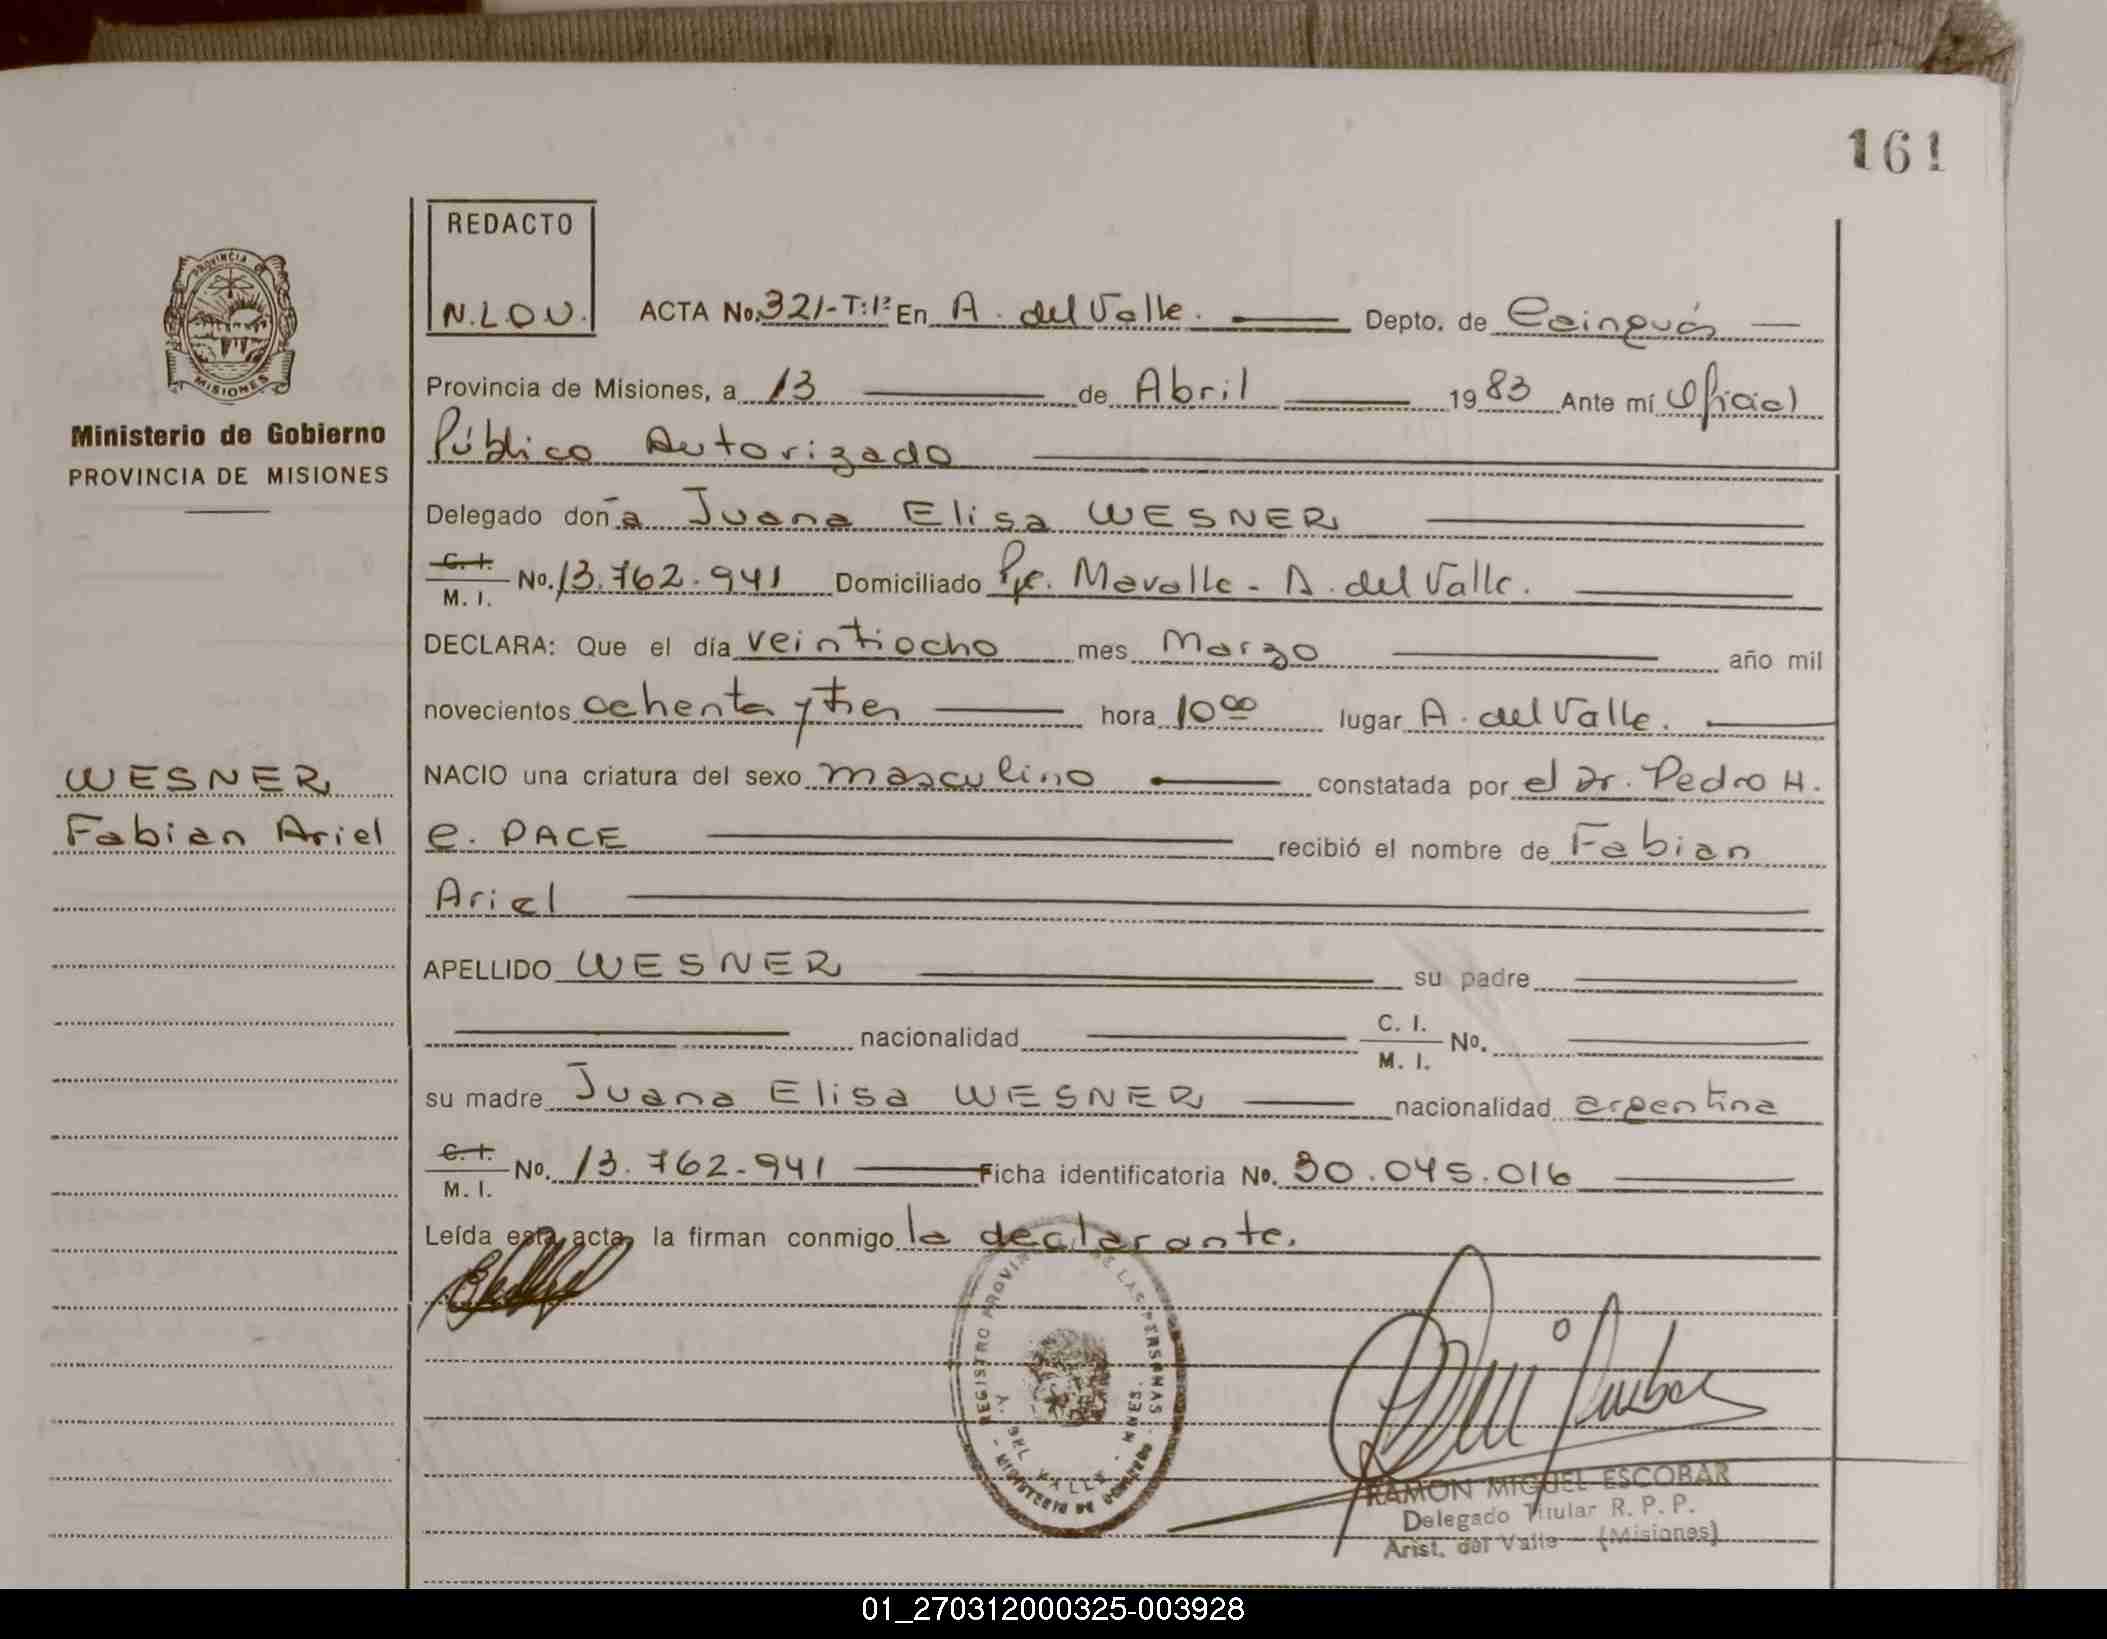 161
REDACTO
N.L.O.V.
ACTA No. 321-T:1º En A. del Valle. Depto. de Cainguás
Provincia de Misiones, a 13 de Abril 1983 Ante mí Oficial
Público Autorizado
Ministerio de Gobierno
PROVINCIA DE MISIONES
Delegado doña Juana Elisa WESNER
C. I.
M. I. No. 13.762.941 Domiciliado Pje. Mavalle - A. del Valle.
DECLARA: Que el día veintiocho mes Marzo año mil
novecientos ochenta y tres hora 10 00 lugar A. del Valle.
NACIO una criatura del sexo masculino constatada por el Dr. Pedro H.
WESNER
Fabian Ariel
e. PACE recibió el nombre de Fabian
Ariel
APELLIDO WESNER su padre
nacionalidad C. I. M. I. No.
su madre Juana Elisa WESNER nacionalidad argentina
C. I.
M. I. No. 13.762.941 Ficha identificatoria No. 30.045.016
Leída esta acta, la firman conmigo la declarante.
REGISTRO PROVIN DE LAS PERSONAS
A. DEL VALLE - MNES.
RAMON MIGUEL ESCOBAR
Delegado Titular R. P. P.
Arist. del Valle - (Misiones)
01_270312000325-003928